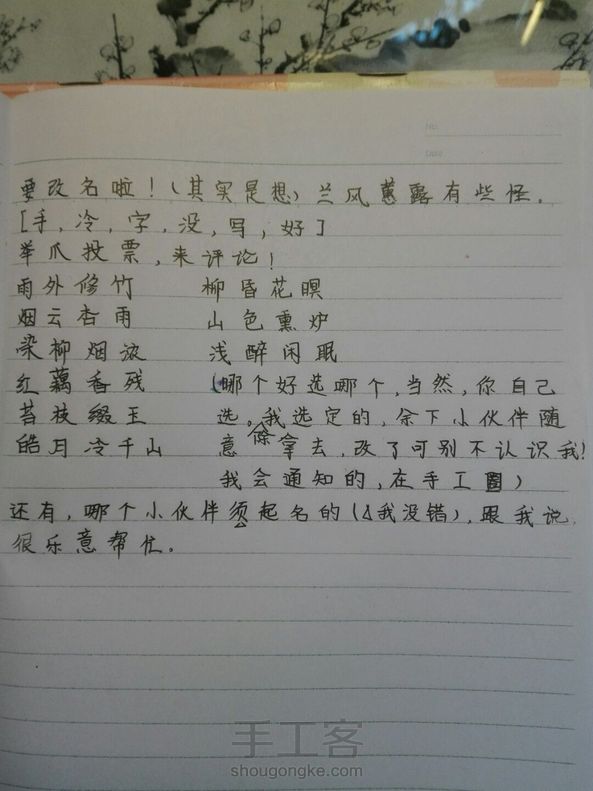 要改名啦！（其实是想）兰风蕙露有些怪。
[手，冷，字，没，写，好]
举爪投票，来评论！
雨外修竹 柳昏花暝
烟云杏雨 山色熏炉
染柳烟浓 浅醉闲眠
红藕香残 （哪个好选哪个，当然，你自己
苔枝缀玉 选。除我选定的，余下小伙伴随
皓月冷千山 意拿去，改了可别不认识我！
我会通知的，在手工圈）
还有，哪个小伙伴须起名的（△我没错），跟我说，
很乐意帮忙。
手工客
shougongke.com